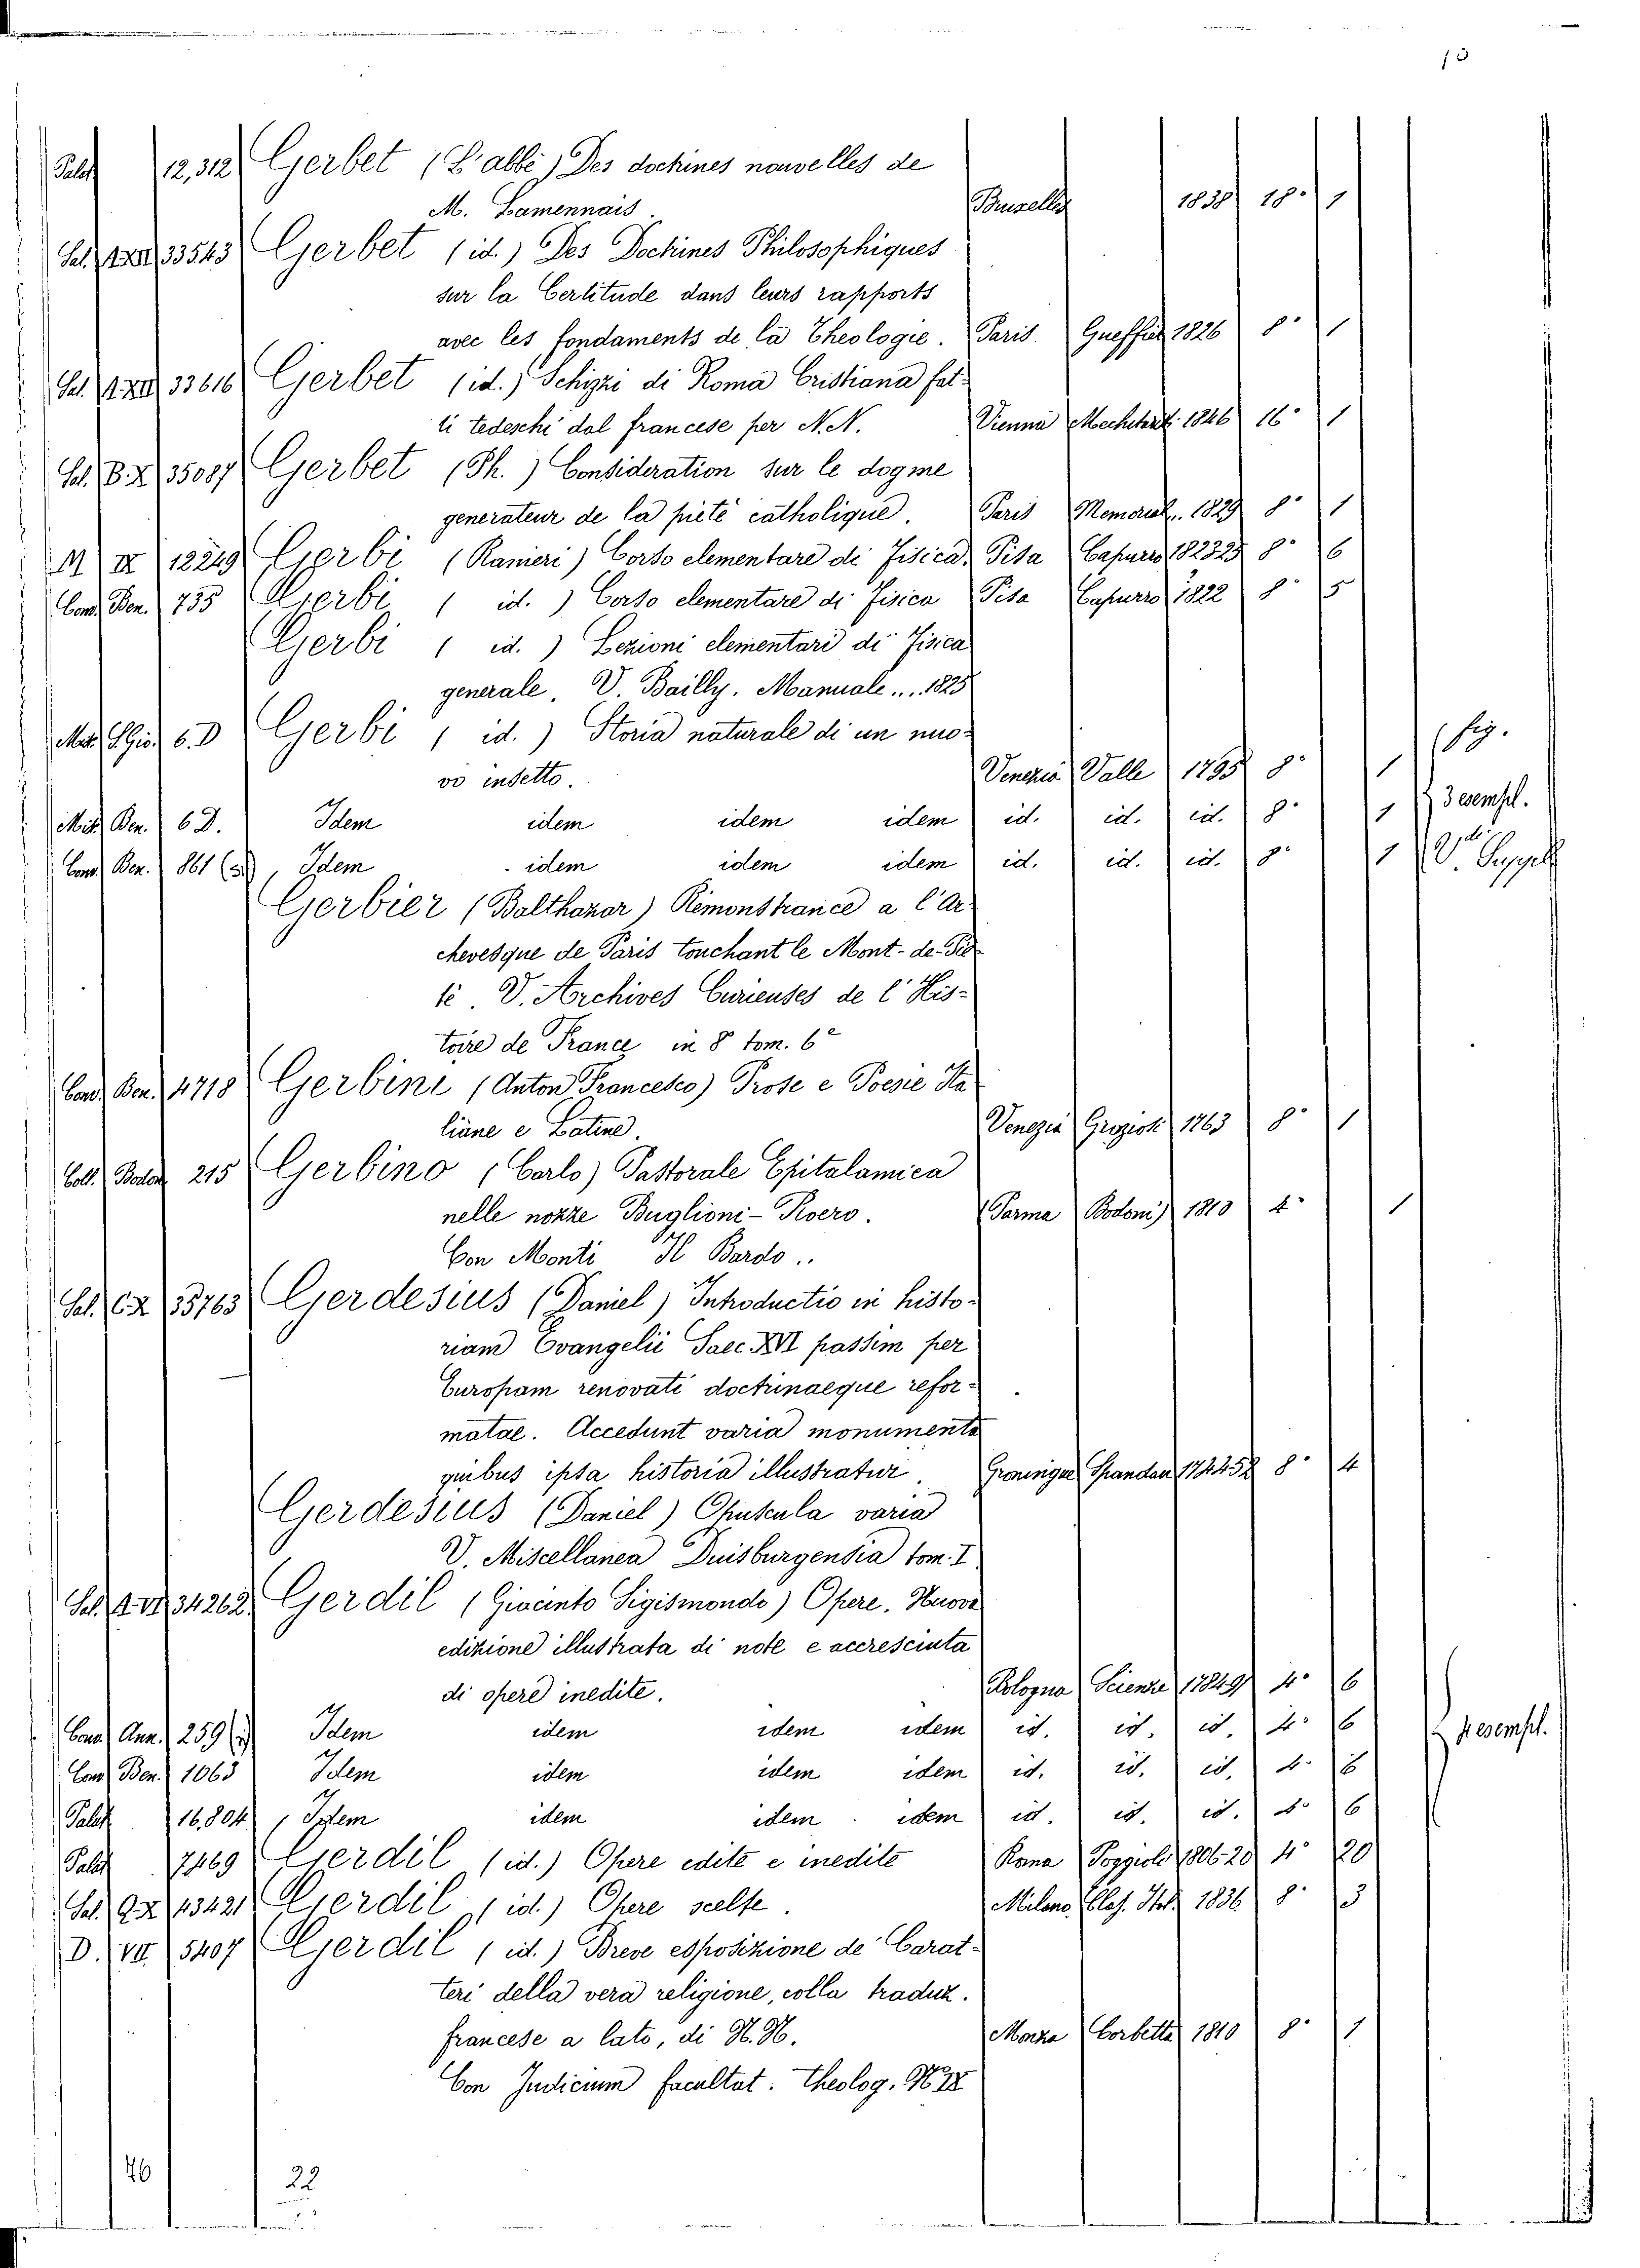 Palat 12,312 Gerbet (L'abbé) Des doctrines nouvelles de
M. Lamennais. Bruxelles 1838 18° 1
Sal. 33543 Gerbet (id.) Des Doctrines Philosophiques
sur la Certitude dans leurs rapports
avec les fondaments de la Theologie. Paris. Gueffier 1826 8° 1
Sal. 33616 Gerbet (id.) Schizzi di Roma Cristiana fat-
ti tedeschi dal francese per N. N. Vienna Mechitarist. 1846 16° 1
Sal. B. X 35087 Gerbet (Ph.) Consideration sur le dogme
generateur de la pieté catholique. Paris Memorial. 1829 8° 1
M IX 12249 Gerbi (Ranieri) Corso elementare di Fisica. Pisa Capurro 1823 25 8° 6
Cons. Ben. 735 Gerbi ( id. ) Corso elementare di Fisica Pisa Capurro 1822 8° 5
Gerbi ( id. ) Lezioni elementari di Fisica
generale. V. Bailly. Manuale... 1825
6. D Gerbi ( id. ) Storia naturale di un nuo-
vo insetto. Venezia Valle 1795 8° 1 fig.
Ben. 6 D. Idem idem idem idem id. id. id. 8° 1 3 esempl.
Cons. Ben. 861 Idem idem idem idem id. id. id. 8° 1 V. Suppell
Gerbier (Balthazar) Remonstrance a l'Ar-
chevesque de Paris touchant le Mont-de-Pié-
té. V. Archives Curieuses de l'His-
toire de France in 8° tom. 6°
Cons. Ben. 4718 Gerbini (Anton Francesco) Prose e Poesie Ita-
liane e Latine. Venezia Grozioti 1763 8° 1
Coll. Bodon. 215 Gerbino (Carlo) Pastorale Epitalamica
nelle nozze Buglioni-Roero. (Parma Bodoni) 1810 4° 1
Con Monti Il Bardo..
Sal. C X 35763 Gerdesius (Daniel) Introductio in histo-
riam Evangelii Saec. XVI passim per
Europam renovati doctrinaeque refor-
matae. Accedunt varia monumenta
quibus ipsa historia illustratur. Groningae Spandaw 1744 52 8° 4
Gerdesius (Daniel) Opuscula varia
V. Miscellanea Duisburgensia tom. I
Sal. 34262 Gerdil (Giacinto Sigismondo) Opere. Nuova
edizione illustrata di note e accresciuta
di opere inedite. Bologna Scienze 17849 4° 6
Cons. Ann. 259 Idem idem idem idem id. id. id. 4° 6
Cons. Ben. 1063 Idem idem idem idem id. id. id. 4° 6 4 esempl.
Palat 16,804 Idem idem idem idem id. id. id. 4° 6
Palat 7469 Gerdil (id.) Opere edite e inedite Roma Poggioli 1806-20 4° 20
Sal. Q X 43421 Gerdil (id.) Opere scelte. Milano Class. Ital. 1836 8° 3
D. VII. 5407 Gerdil (id.) Breve esposizione de' Carat-
teri della vera religione, colla traduz.
francese a lato, di N. N. Monza Corbetta 1810 8° 1
Con Judicium facultat. Theolog.
46 22